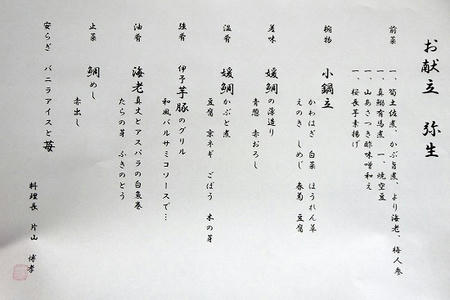 お献立 弥生
前菜
一、筍土佐煮、かぶら煮、より海老、梅人参
一、真鯛有馬煮 一、焼空豆
一、山あさつき酢味噌和え
一、桜長芋素揚げ
椀物
小鍋立
かわはぎ 白菜 ほうれん草
えのき しめじ 春菊 豆腐
差味
媛鯛の薄造り
青葱 赤おろし
温肴
媛鯛かぶと煮
豆腐 京ネギ ごぼう 木の芽
強肴
伊予芋豚のグリル
和風バルサミコソースで…
油肴
海老真丈とアスパラの白魚巻
たらの芽 ふきのとう
止菜
鯛めし
赤出し
安らぎ バニラアイスと苺
料理長 片山 博孝